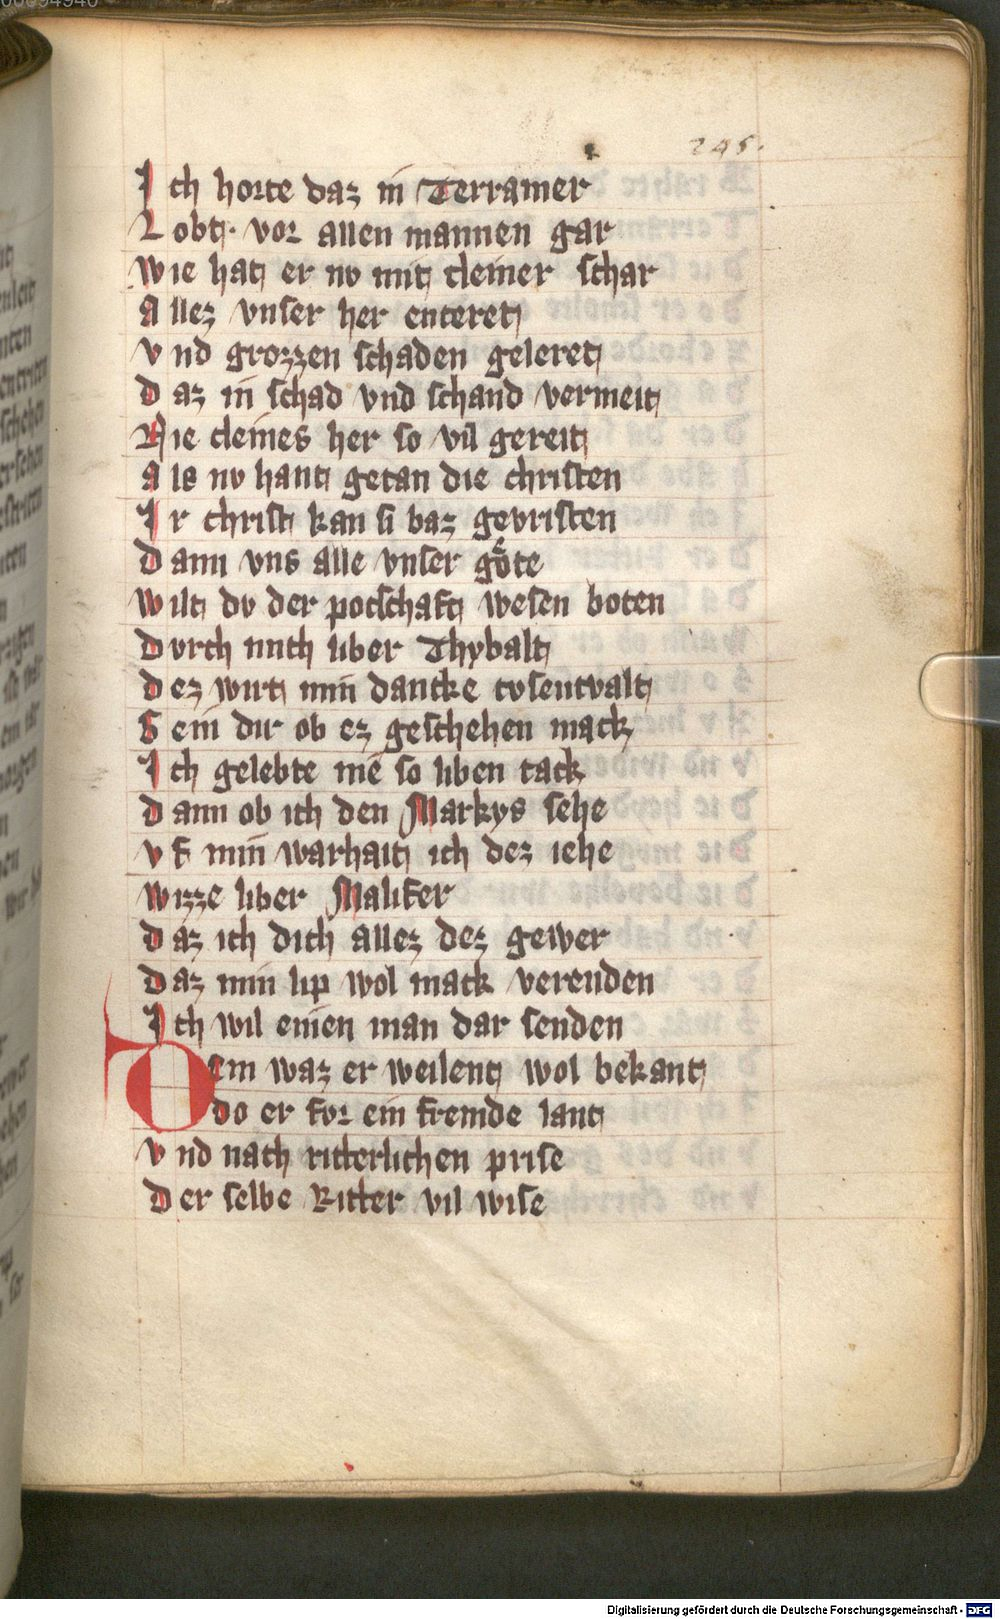 245.
Ich horte daz in Terramer
Lobt. vor allen mannen gar
Wie hat er nv mit cleiner schar
Allez vnser her enteret
Vnd grozzen schaden geleret
Daz in schad vnd schand vermeit
Nie cleines her so vil gereit
Als nv hant getan die christen
Ir christ kan si baz gevristen
Dann vns alle vnser göte
Wilt dv der potschaft wesen boten
Dvrch mich liber Thybalt
Dez wirt min dancke tvsentvalt
Sein dir ob ez geschehen mack
Ich gelebte nie so liben tack
Dann ob ich den Markys sehe
Vf min warhait ich dez iehe
Wizze liber Malifer
Daz ich dich allez dez gewer
Daz min lip wol mack verenden
Ich wil einen man dar senden
Dem waz er weilent wol bekant
do er for ein fremde lant
Vnd nach ritterlichen prise
Der selbe Ritter vil wise
Digitalisierung gefördert durch die Deutsche Forschungsgemeinschaft - DFG